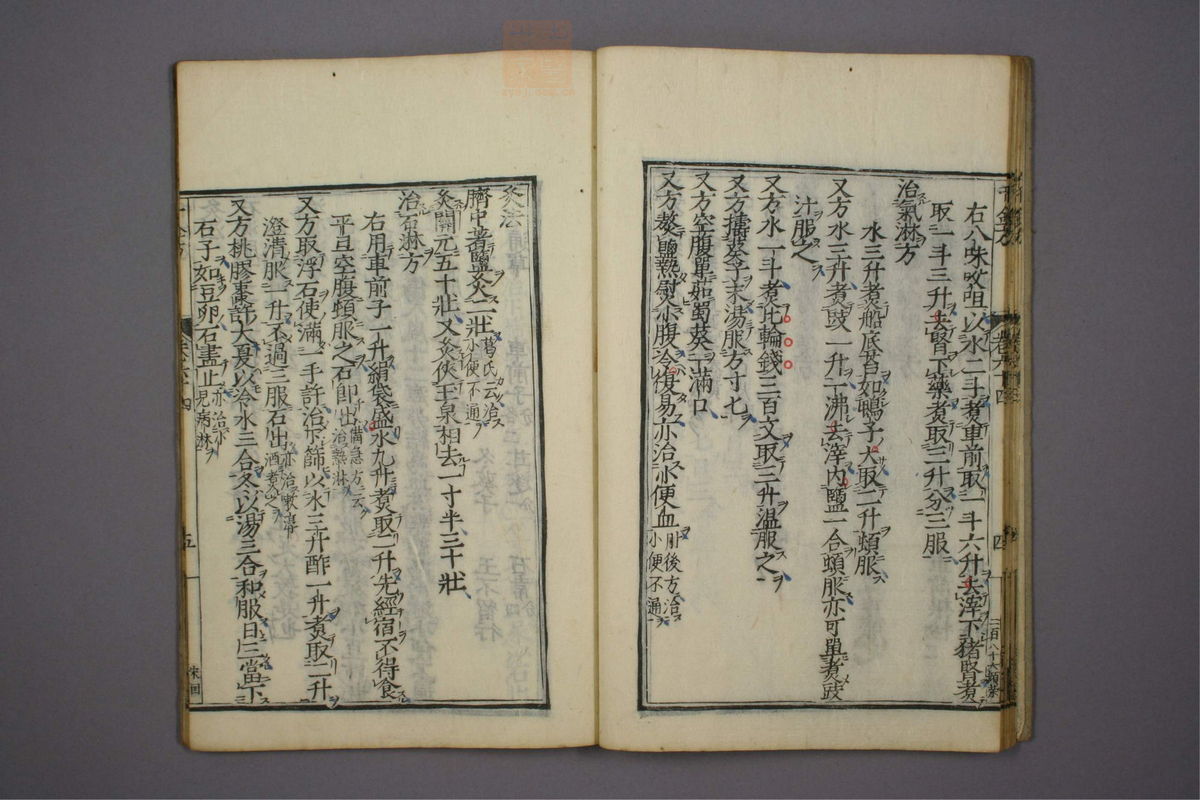 右八味㕮咀以水二斗煮車前取一斗六升去滓下猪腎煮
取一斗三升去腎下藥煮取三升分三服
治氣淋方
水三升煮船底苔如鴨子大取二升頓服
又方水三升煮豉一升一沸去滓內鹽一合頓服亦可單煮豉
汁服之
又方水一斗煮比輪錢三百文取三升溫服之
又方擣葵子末湯服方寸匕
又方空腹單茹蜀葵一滿口
又方熬鹽熱熨小腹冷復易亦治小便血肘後方治小便不通
四
灸法
臍中著鹽灸三壯葛氏云治小便不通
灸關元五十壯又灸俠玉泉相去一寸半三十壯
治石淋方
右用車前子一升絹袋盛水九升煮取三升先經宿不得食
平旦空腹頓服之石即出備急方云治熱淋
又方取浮石使滿一手許治下篩以水三升酢一升煮取二升
澄清服一升不過三服石出亦治嗽淳酒煮之
又方桃膠棗許大夏以冷水三合冬以湯三合和服日三當下
石子如豆卵石盡止亦治小兒病淋
五